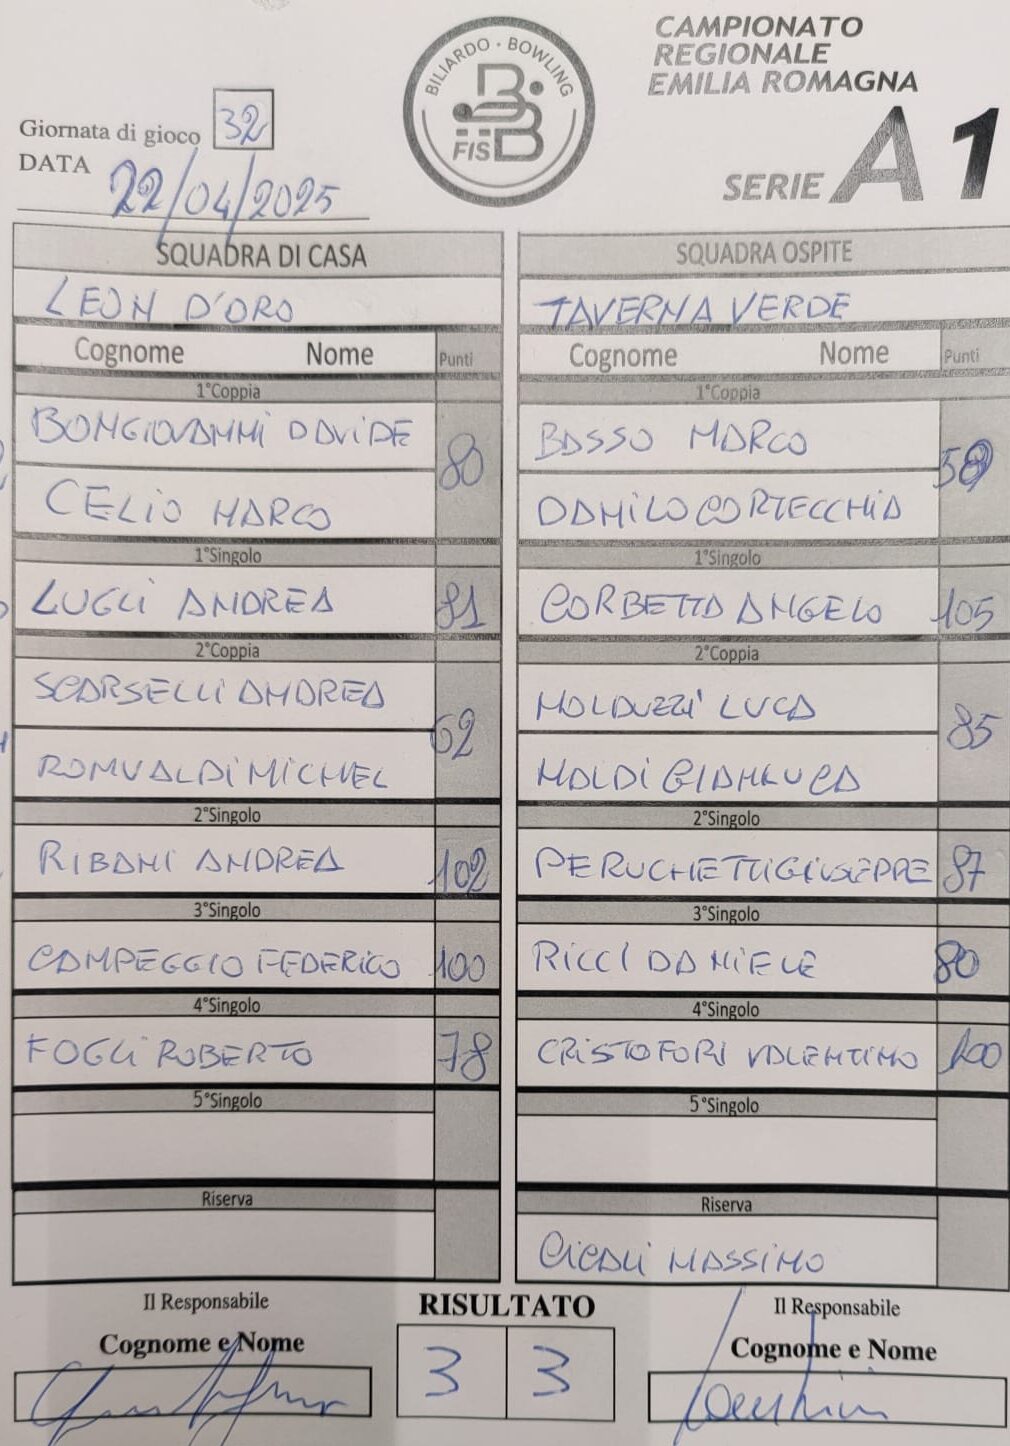 BILIARDO · BOWLING
FISBB
CAMPIONATO
REGIONALE
EMILIA ROMAGNA
SERIE A1
Giornata di gioco 32
DATA 22/04/2025
SQUADRA DI CASA SQUADRA OSPITE
LEON D'ORO TAVERNA VERDE
Cognome Nome Punti Cognome Nome Punti
1°Coppia 1°Coppia
BONGIOVANNI DAVIDE BASSO MARCO
80
CELIO MARCO DANILO CORTECCHIA
1°Singolo 1°Singolo
LUGLI ANDREA 81 CORBETTA ANGELO 105
2°Coppia 2°Coppia
SCARSELLI ANDREA MOLDUZZI LUCA
62 85
ROMUALDI MICHEL NALDI GIANLUCA
2°Singolo 2°Singolo
RIBANI ANDREA 102 PERUCHETTI GIUSEPPE 87
3°Singolo 3°Singolo
CAMPEGGIO FEDERICO 100 RICCI DANIELE 80
4°Singolo 4°Singolo
FOGLI ROBERTO 78 CRISTOFORI VALENTINO 100
5°Singolo 5°Singolo
Riserva Riserva
CICALI MASSIMO
Il Responsabile RISULTATO Il Responsabile
Cognome e Nome 3 3 Cognome e Nome